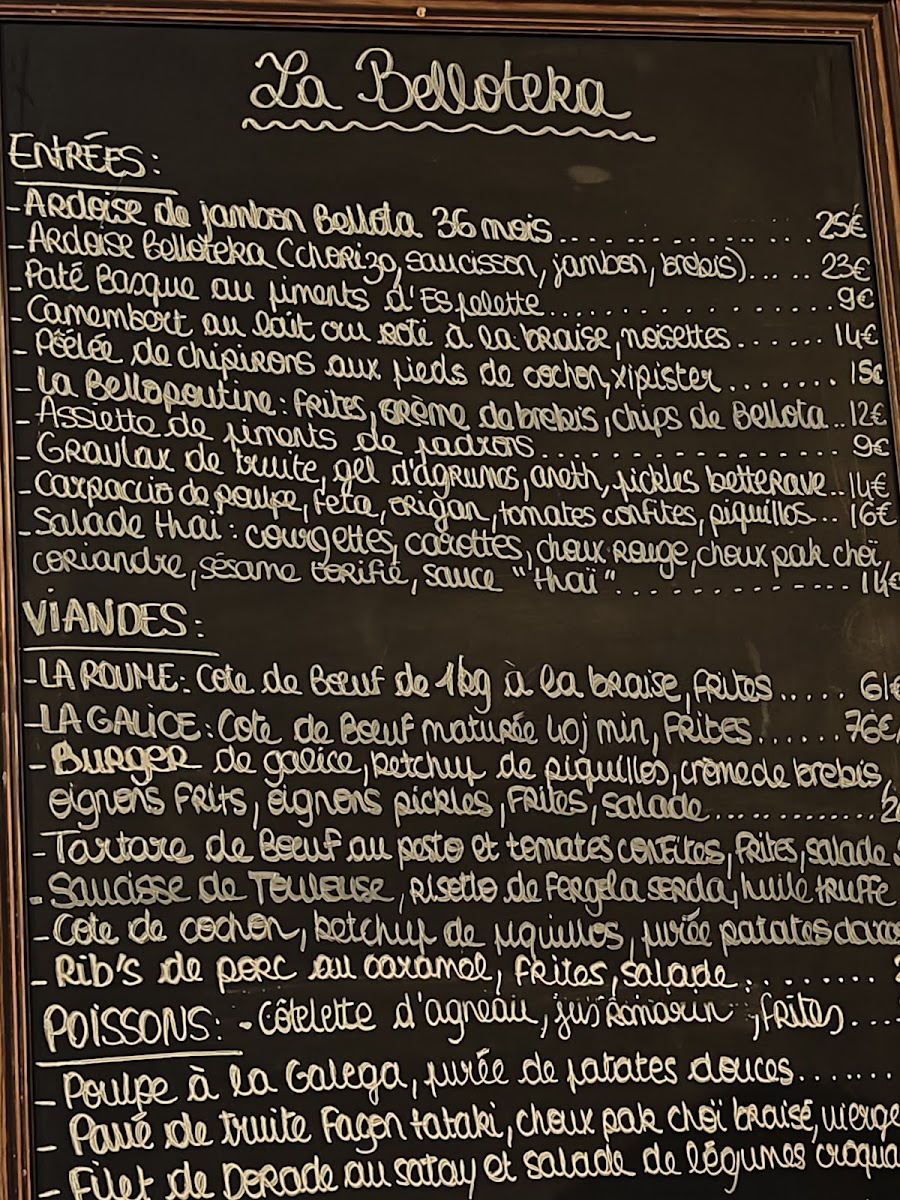 La Belloteka
ENTRÉES:
- Ardoise de jambon Bellota 36 mois.................. 25€
- Ardoise Belloteka (chorizo, saucisson, jambon, brebis)..... 23€
- Paté Basque au piments d'Espelette.................. 9€
- Camembert au lait cru roti à la braise, noisettes....... 14€
- Pöêlée de chipirons aux pieds de cochon, xipister........ 15€
- La Bellopoutine: Frites, crème de brebis, chips de Bellota.. 12€
- Assiette de piments de padrons.................. 9€
- Gravlax de truite, gel d'agrumes, aneth, pickles betterave.. 14€
- Carpaccio de poulpe, feta, origan, tomates confites, piquillos... 16€
- Salade thaï: courgettes, carottes, choux rouge, choux pak choï,
coriandre, sésame torifié, sauce "thaï"............... 14€
VIANDES:
- LA ROUNE: Cote de Boeuf de 1kg à la braise, Frites..... 61€
- LA GALICE: Cote de Boeuf maturée 40j min, Frites....... 76€
- Burger de galice, ketchup de piquillos, crème de brebis,
oignons Frits, oignons pickles, Frites, salade...............
- Tartare de Boeuf au pesto et tomates confites, frites, salade
- Saucisse de Toulouse, Risotto de Fergola serda, huile truffe
- Cote de cochon, ketchup de piquillos, purée patates
- Rib's de porc au caramel, frites, salade.........
POISSONS: - Côtelette d'agneau, jus Romarin, frites....
- Poulpe à la Galega, purée de patates douces.......
- Pavé de truite Façon tataki, choux pak choï braisé, vierge
- Filet de Dorade au satay et salade de légumes croqua